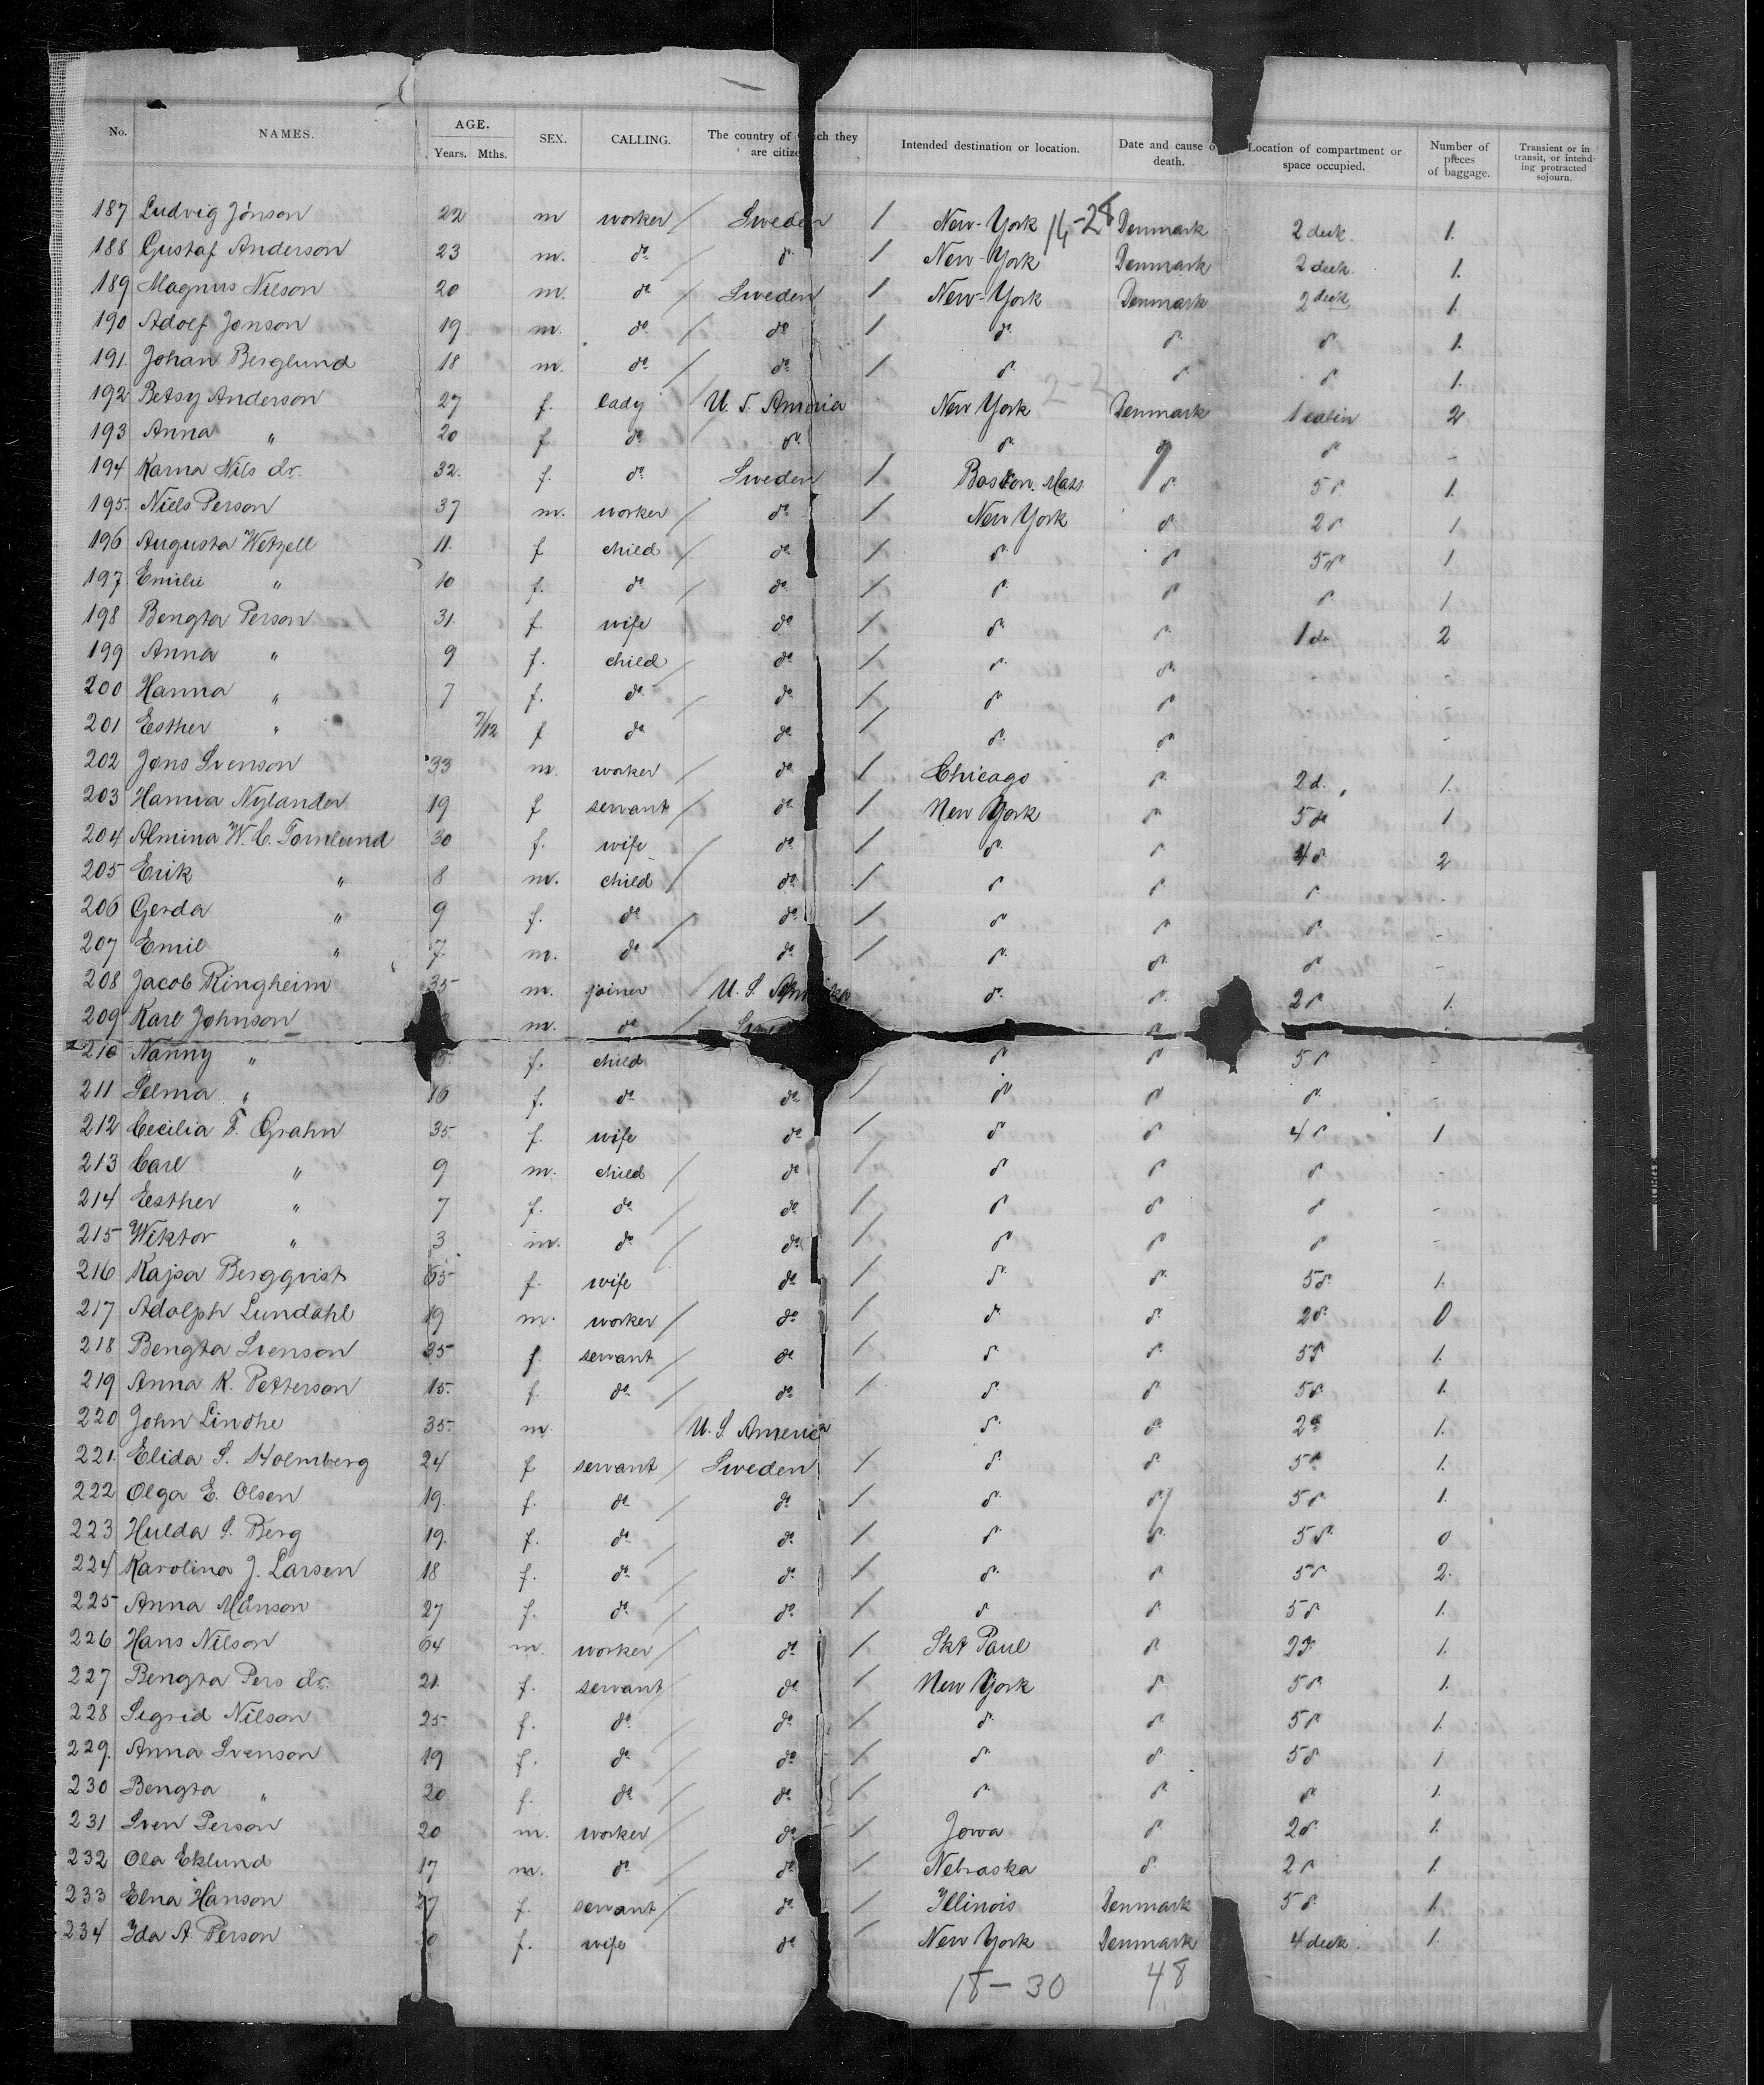 No. NAMES. AGE. Years. Mths. SEX. CALLING. The country of which they are citize Intended destination or location. Date and cause o death. Location of compartment or space occupied. Number of pieces of baggage. Transient or in transit, or intending protracted sojourn.
187 Ludvig Jönson 22 m worker / Sweden / New-York 14-28 Denmark 2 deck. 1.
188 Gustaf Anderson 23 m. do / do / New-York Denmark 2 deck 1.
189 Magnus Nilson 20 m. do / Sweden / New-York Denmark 2 deck 1.
190 Adolf Jonson 19 m. do / do / do do do 1.
191. Johan Berglund 18 m. do / do / do do do 1.
192 Betsy Anderson 27 f. lady / U. S. America New York Denmark 1 cabin 2
193 Anna " 20 f do / do do do do -
194 Karna Nils dr. 32. f. do Sweden / Boston. Mass do 5 do 1.
195. Niels Person 37 m. worker / do / New York do 2 do 1
196 Augusta Wetzell 11. f child / do / do do 5 do 1
197 Emilie " 10 f. do / do / do do do 1
198 Bengta Person 31. f. wife do / do do 1 do 2
199 Anna " 9 f. child / do / do do - -
200 Hanna " 7 f. do / do / do do - -
201 Esther " 7/12 f do do / do do - -
202 Jøns Svenson 33 m. worker / do / Chicago do 2 d. 1.
203 Hanna Nylander 19 f servant / do / New York do 5 do 1
204 Almina W. C. Tornlund 30 f. wife / do / do do 4 do 2
205 Erik " 8 m. child / do / do do do -
206 Gerda " 9 f. do / do / do do do -
207 Emil " 7. m. do / do / do do do -
208 Jacob Ringheim 35 m. joiner U. S. do do 2 do 1.
209 Karl Johnson m. do / do
210 Nanny " 5. f. child do do 5 do -
211 Selma " 16 f. do do / do do do -
212 Cecilia T. Grahn 35 f. wife do / do do 4 do 1
213 Carl " 9 m. child / do / do do do -
214 Eesther " 7 f. do / do / do do do -
215 Wiktor " 3 m. do / do / do do do -
216 Kajsa Bergqvist 65 f. wife do / do do 5 do 1.
217 Adolph Lundahl 19 m. worker / do / do do 2 do 0
218 Bengta Svenson 25 f. servant / do / do do 5 do 1.
219 Anna K. Petterson 15. f. do / do / do do 5 do 1.
220 John Lindhe 35. m. U. S America do do 2 do 1.
221. Elida S. Holmberg 24 f servant / Sweden / do do 5 do 1.
222 Olga E. Olsen 19. f. do / do / do do 5 do 1.
223 Hulda S. Berg 19. f. do / do / do do 5 do 0
224 Karolina J. Larsen 18 f. do / do / do do 5 do 2.
225 Anna Månson 27 f. do / do / do do 5 do 1.
226 Hans Nilson 64 m. worker / do / Skt Paul do 2 do 1.
227 Bengta Pers dr. 21. f. servant / do / New York do 5 do 1.
228 Sigrid Nilson 25 f. do / do / do do 5 do 1.
229. Anna Svenson 19 f. do / do / do do 5 do 1
230 Bengta " 20 f. do / do / do do do 1.
231 Sven Person 20 m. worker / do / Jowa do 2 do 1.
232 Ola Eklund 17 m. do / do / Nebraska do 2 do 1.
233 Elna Hanson 27 f. servant / do / Illinois Denmark 5 do 1.
234 Ida A. Person f. wife do / New York Denmark 4 deck. 1.
18-30 48